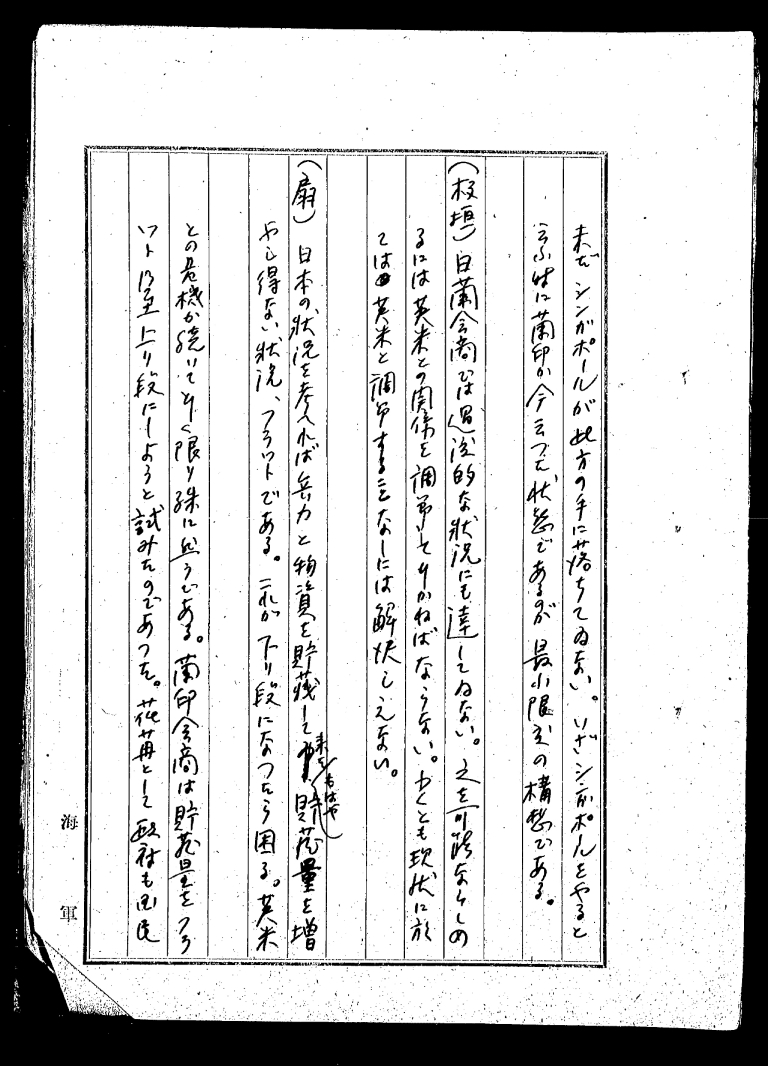 未だシンガポールが此方の手に落ちてゐない。いざシンガポールをやると
云ふ時に蘭印が今云つた状態であるが最小限度の構想である。
(板垣)日蘭会商では過渡的な状況にも達してゐない。之を可能ならしめ
るには英米との関係を調節してかゝねばならない。少くとも現状に於
ては英米と調節することなしには解決しえない。
(扇)日本の状況を考へれば兵力と物資を貯蔵して来て、もはや貯蔵量を増
やし得ない状況、フラットである。これが下り段になつたら困る。英米
との危機が続いてゐる限り殊に然うである。蘭印会商は貯蔵量をフラ
ットより上り段にしようと試みたのであつた。花井として政府も国民
海軍